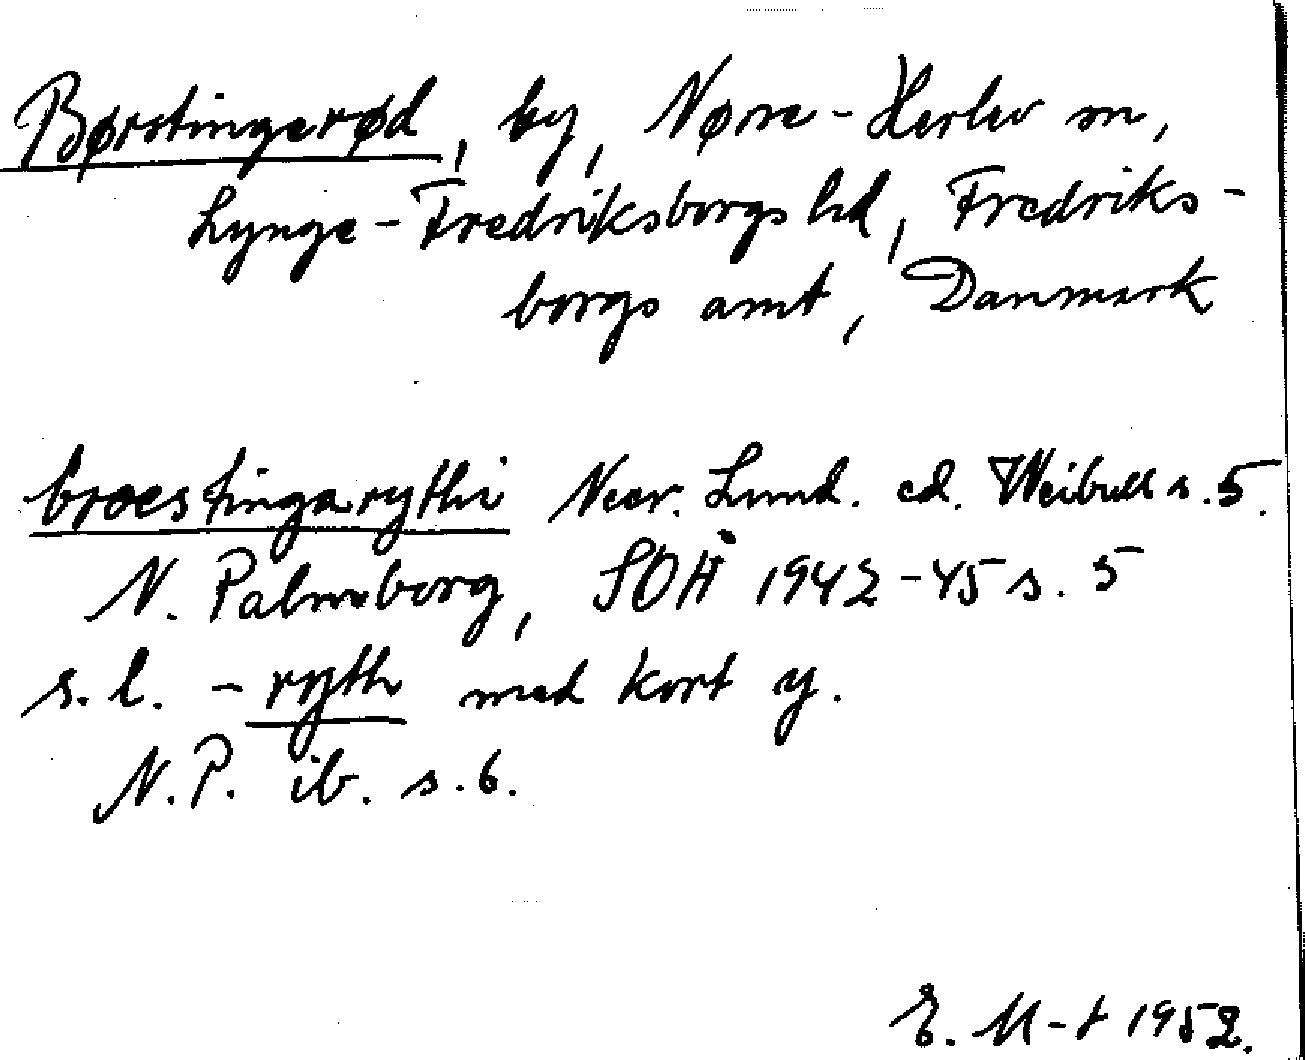 Børstingerød, by, Nørre-Herlev sn,
Lynge-Fredriksborgs hd, Fredriks-
borgs amt, Danmark
broestingarythi Necr. Lund. ed. Weibull s. 5.
N. Palmborg, SOÅ 1942-45 s. 5
s. l. -ryth med kort y.
N.P. ib. s. 6.
E. M-t 1952.